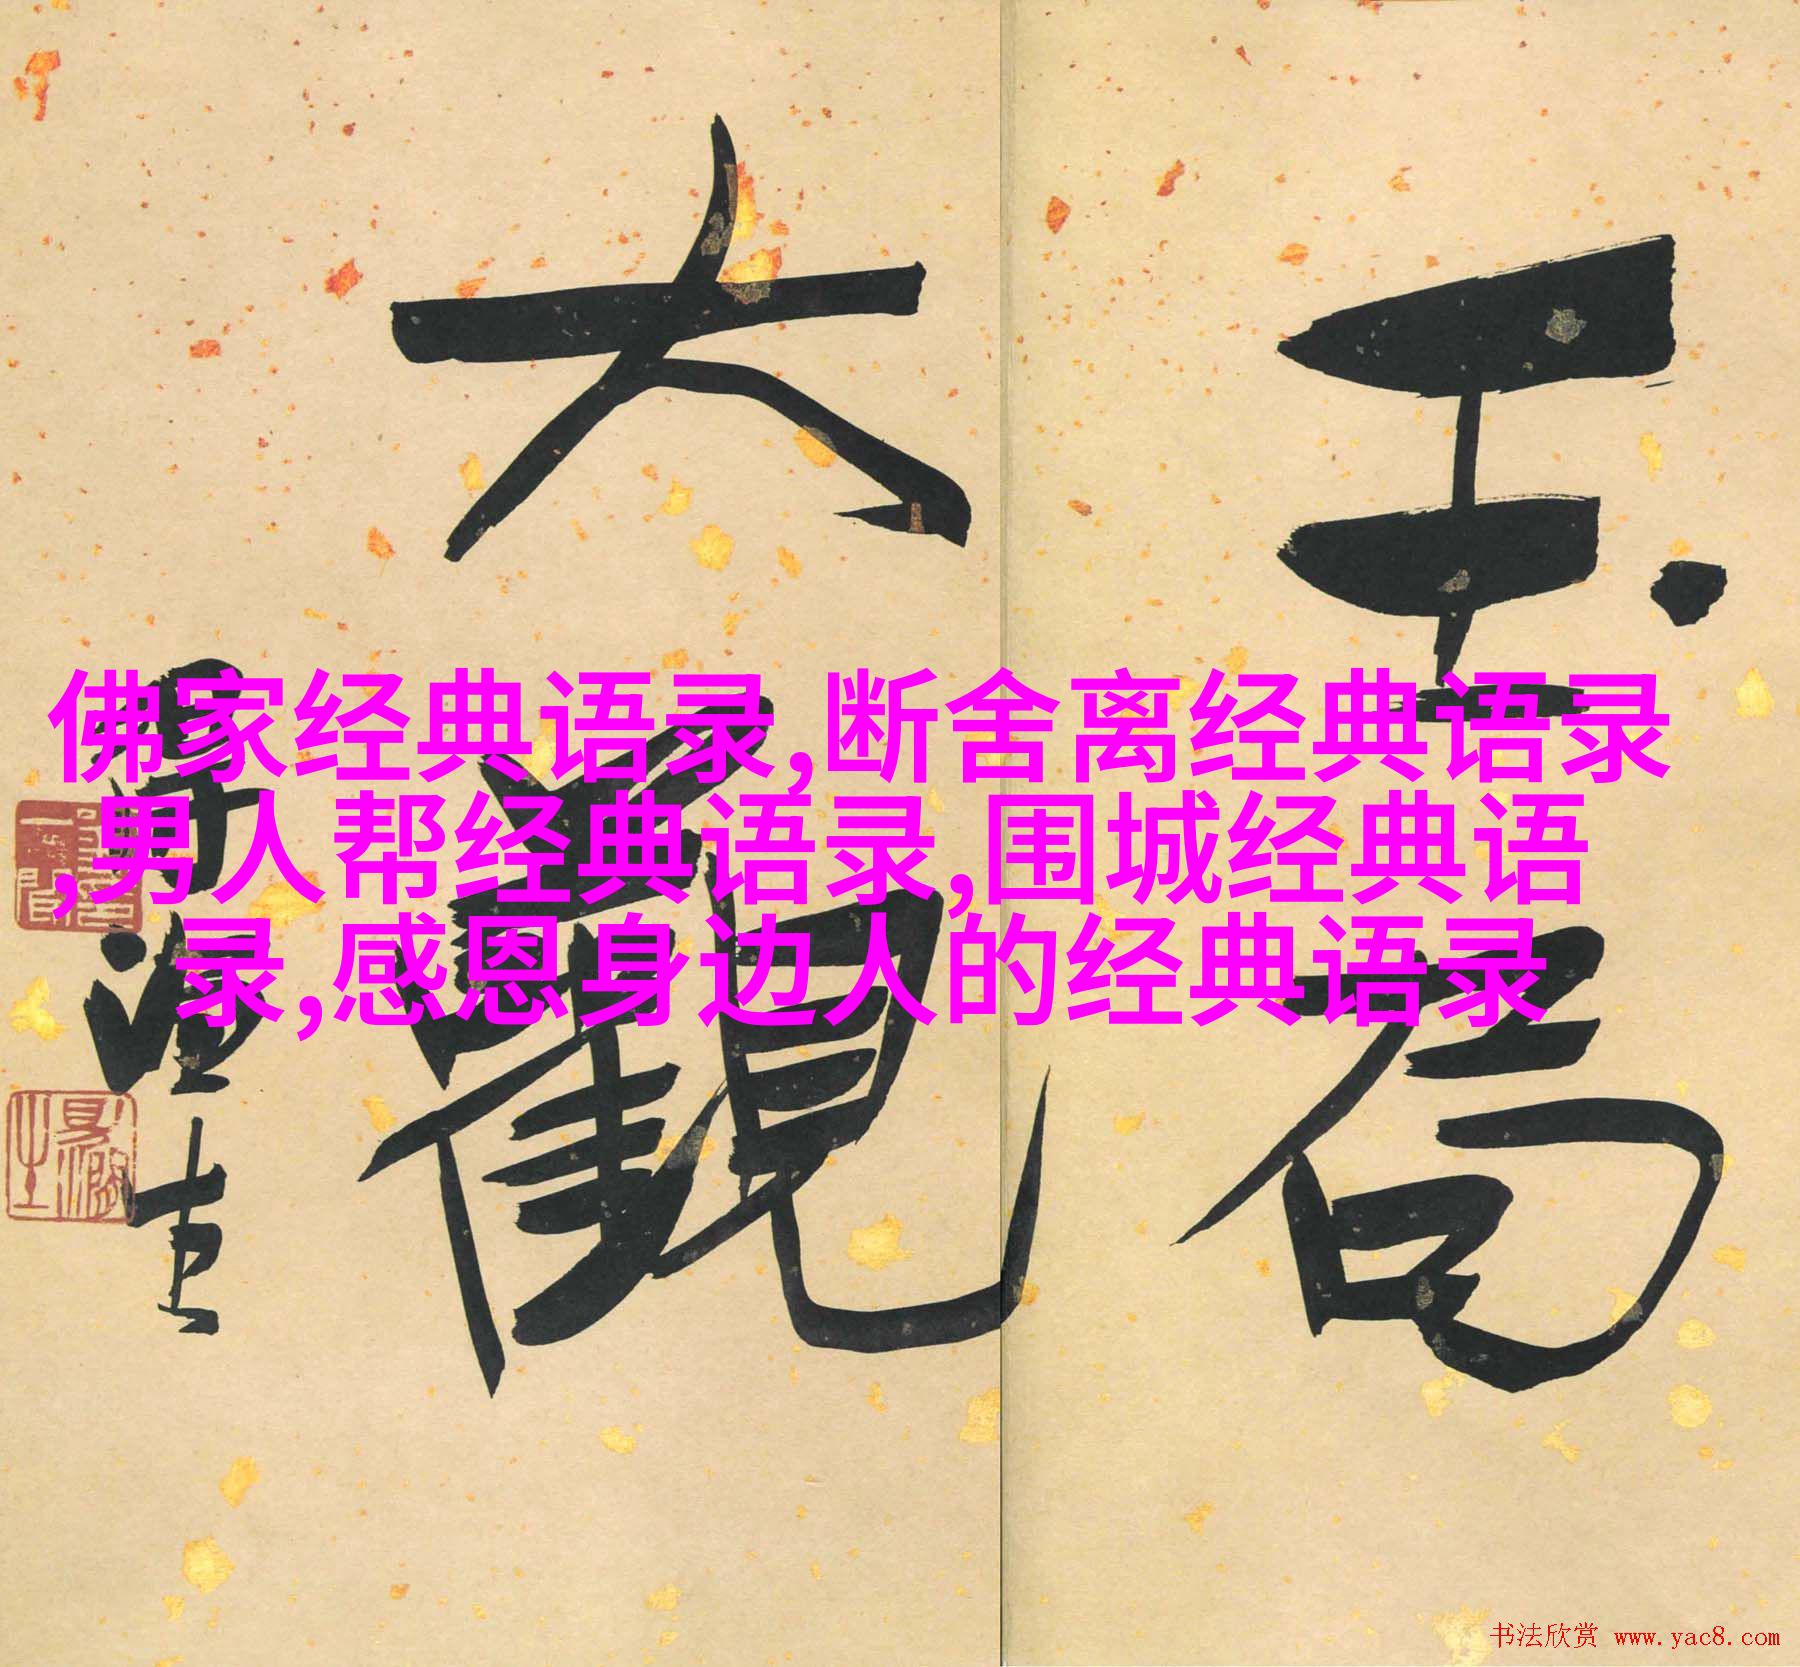 玉局
大觀
佛家经典语录,断舍离经典语录
,男人帮经典语录,围城经典语
录,感恩身边人的经典语录
书法欣赏 www.yac8.com